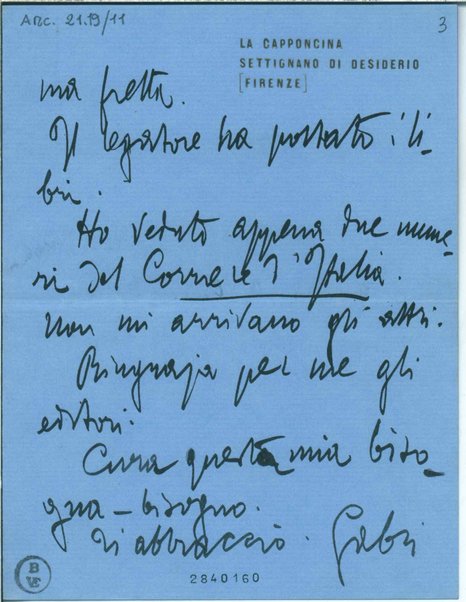 ARC. 21.19/11
3
LA CAPPONCINA
SETTIGNANO DI DESIDERIO
[FIRENZE]
ma fretta.
Il legatore ha portato i li-
bri.
Ho veduto appena due nume-
ri del Corriere d'Italia.
Non mi arrivano gli altri.
Ringrazia per me gli
editori.
Cura questa mia biso-
gna-bisogno.
Ti abbraccio. Gabri
B
VE
2840160